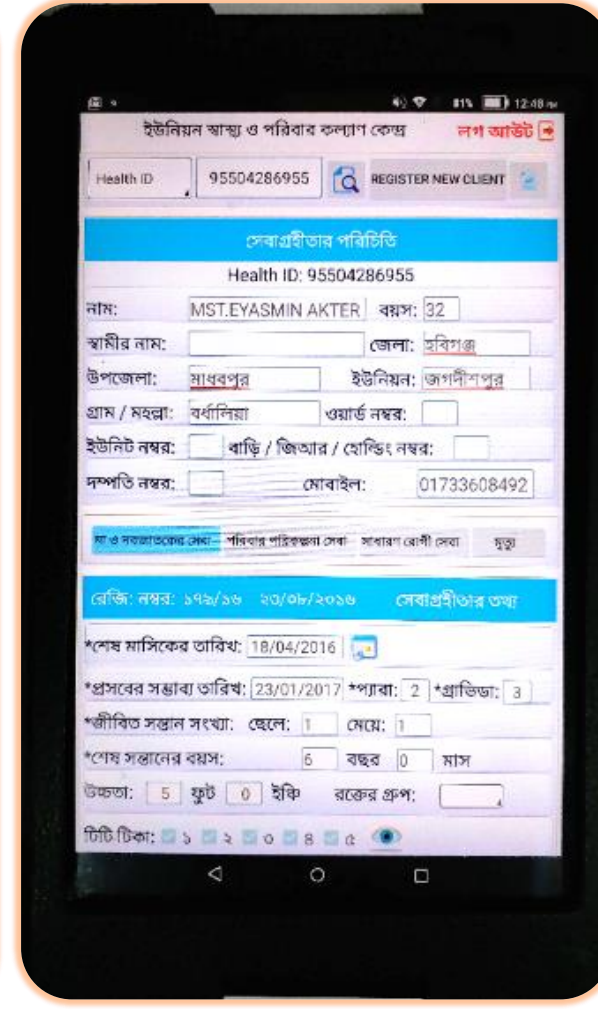 81% 12:48 PM
ইউনিয়ন স্বাস্থ্য ও পরিবার কল্যাণ কেন্দ্র লগ আউট
Health ID 95504286955 REGISTER NEW CLIENT
সেবাগ্রহীতার পরিচিতি
Health ID: 95504286955
নাম: MST.EYASMIN AKTER বয়স: 32
স্বামীর নাম: জেলা: হবিগঞ্জ
উপজেলা: মাধবপুর ইউনিয়ন: জগদীশপুর
গ্রাম / মহল্লা: বর্ধালিয়া ওয়ার্ড নম্বর:
ইউনিট নম্বর: বাড়ি / জিআর / হোল্ডিং নম্বর:
দম্পতি নম্বর: মোবাইল: 01733608492
মা ও নবজাতকের সেবা পরিবার পরিকল্পনা সেবা সাধারণ রোগী সেবা মৃত্যু
রেজি: নম্বর: ১৭৯/১৬ ২৩/০৮/২০১৬ সেবাগ্রহীতার তথ্য
*শেষ মাসিকের তারিখ: 18/04/2016
*প্রসবের সম্ভাব্য তারিখ: 23/01/2017 *প্যারা: 2 *গ্রাভিডা: 3
*জীবিত সন্তান সংখ্যা: ছেলে: 1 মেয়ে: 1
*শেষ সন্তানের বয়স: 6 বছর 0 মাস
উচ্চতা: 5 ফুট 0 ইঞ্চি রক্তের গ্রুপ:
টিটি টিকা: ১ ২ ৩ ৪ ৫